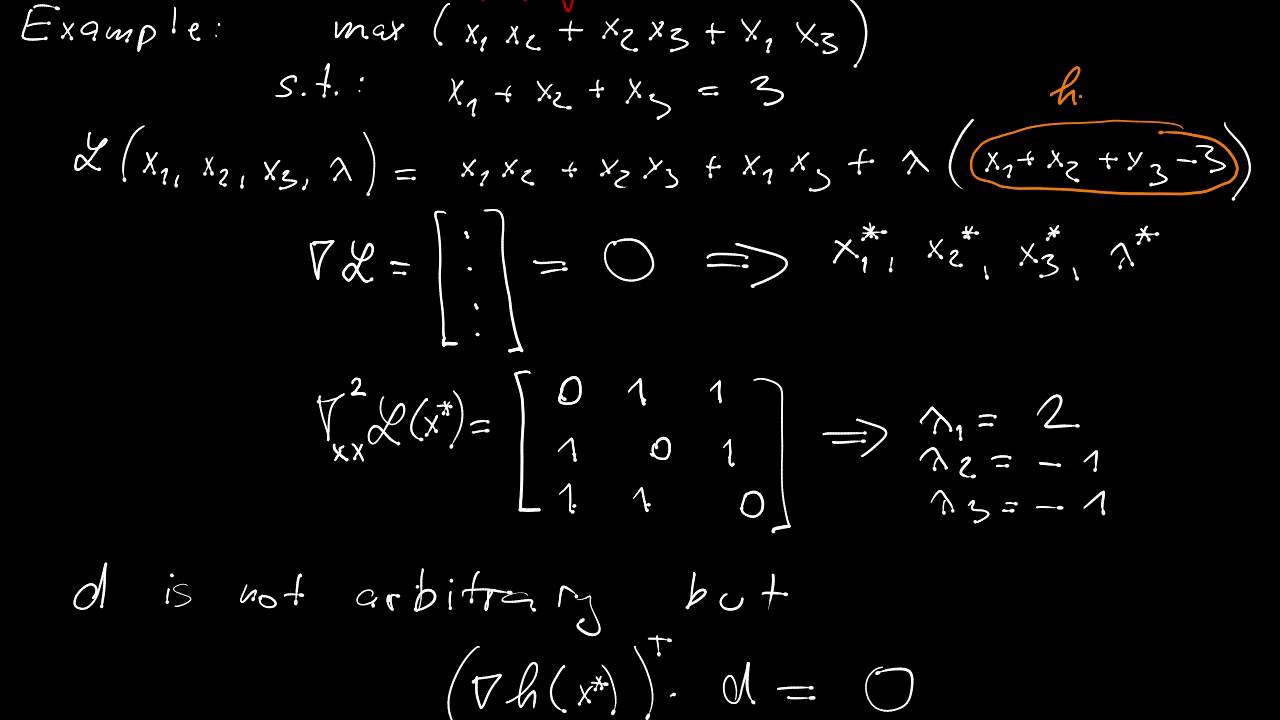 Example: max (x₁ x₂ + x₂ x₃ + x₁ x₃)
s.t.: x₁ + x₂ + x₃ = 3
h
ℒ(x₁, x₂, x₃, λ) = x₁ x₂ + x₂ x₃ + x₁ x₃ + λ (x₁ + x₂ + x₃ - 3)
∇ℒ = [⋮] = 0 ⟹ x₁*, x₂*, x₃*, λ*
∇²ₓₓ ℒ(x*) = [0 1 1 ⟹ λ₁ = 2
1 0 1 λ₂ = -1
1 1 0] λ₃ = -1
d is not arbitrary but
(∇h(x*))ᵀ · d = 0